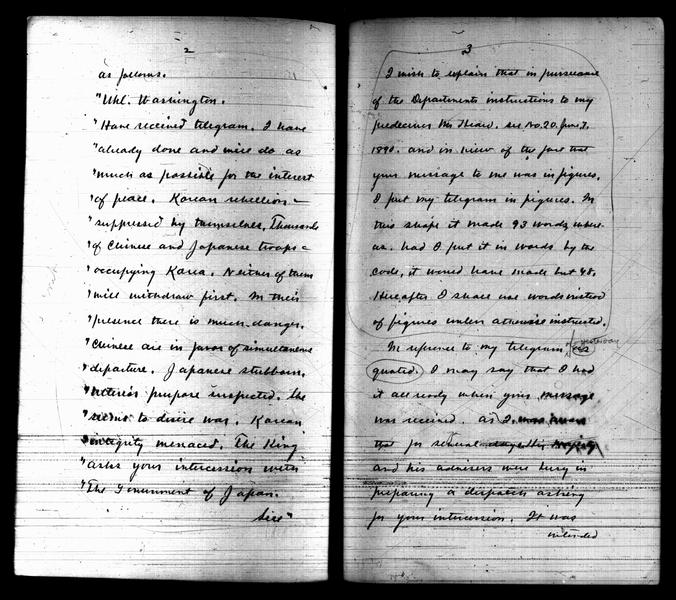 2
as follows.
"Uhl. Washington.
"Have received telegram. I have
"already done and will do as
"much as possible for the interest
"of peace. Korean rebellion –
"suppressed by themselves, Thousands
"of Chinese and Japanese troops –
"occupying Korea. Neither of them
"will withdraw first. In their
"presence there is much danger.
"Chinese are in favor of simultaneous
"departure. Japanese stubborn.
purpose suspected. She
"seems to desire war. Korean
"integrity menaced. The King
"asks your intercession with
"The Government of Japan.
Sill"
3
I wish to explain that in pursuance
of the Departments instructions to my
predecessor Mr Heard. see No. 20. June 7,
1890. and in view of the fact that
your message to me was in figures,
I put my telegram in figures. In
this shape it made 93 words, where-
as. had I put it in words by the
code, it would have made but 48.
Hereafter I shall use words instead
of figures unless otherwise instructed.
In reference to my telegram, of yesterday
quoted. I may say that I had
it all ready when your message
was received. as I
that for several days His Majesty
and his advisers were busy in
preparing a despatch asking
for your intercession. It was
intended